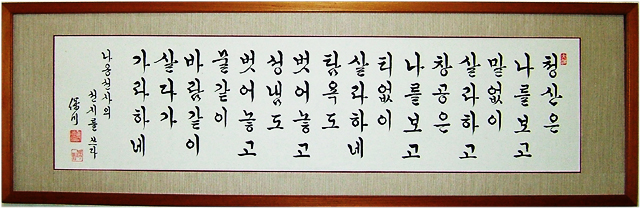 청산은
나를보고
말없이
살라하고
창공은
나를보고
티없이
살라하네
탐욕도
벗어놓고
성냄도
벗어놓고
물같이
바람같이
살다가
가라하네
나옹선사의
선시를 쓰다